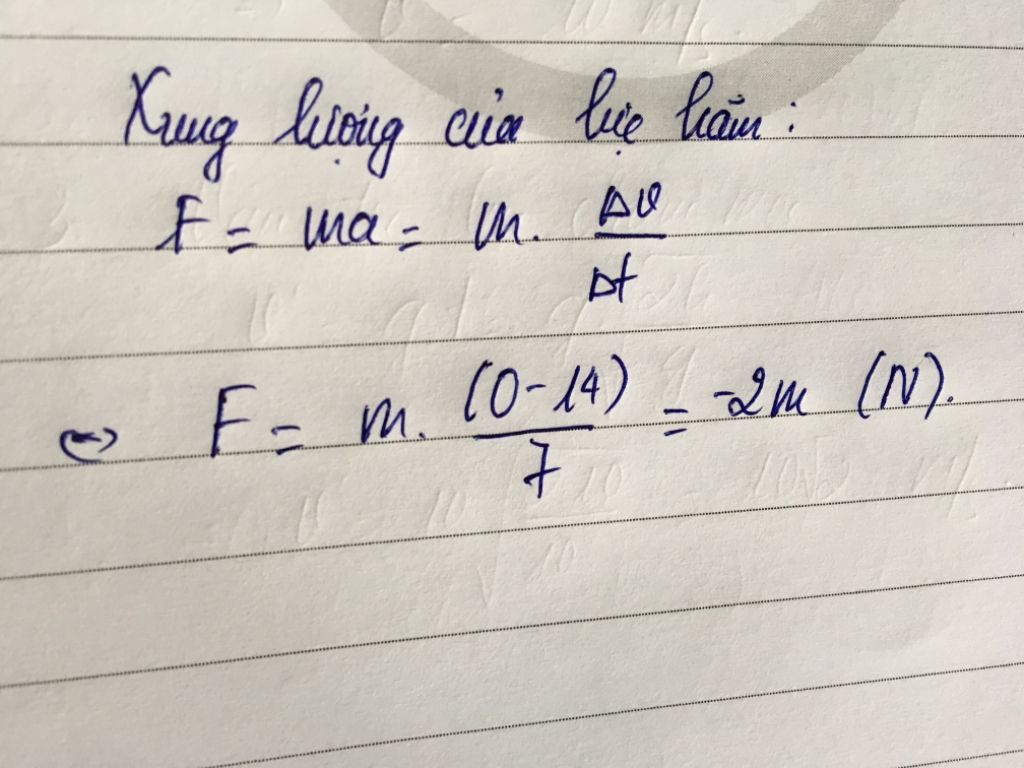 Xung lượng của lực hãm:
F = ma = m. Δv/Δt
⇔ F = m. (0-14)/7 = -2m (N).